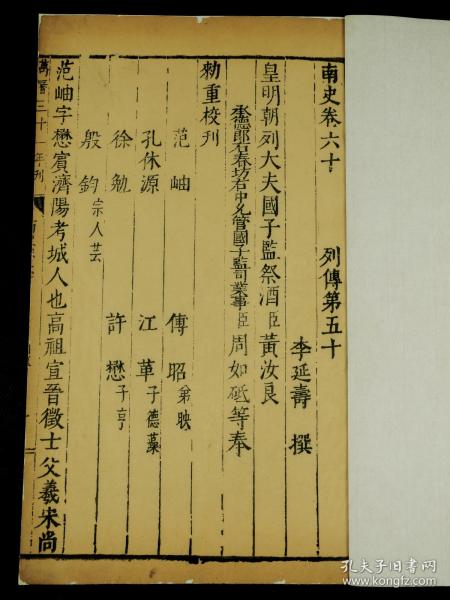 南史卷六十 列傳第五十
李延壽 撰
皇明朝列大夫國子監祭酒臣黃汝良
承德郎右春坊右中允管國子監司業事臣周如砥等奉
勑重校刊
范岫 傅昭弟映
孔休源 江革子德藻
徐勉 許懋子亨
殷鈞宗人芸
范岫字懋賓濟陽考城人也高祖宣晉徵士父羲宋尚
萬曆三十一年刊
孔夫子旧书网
www.kongfz.com